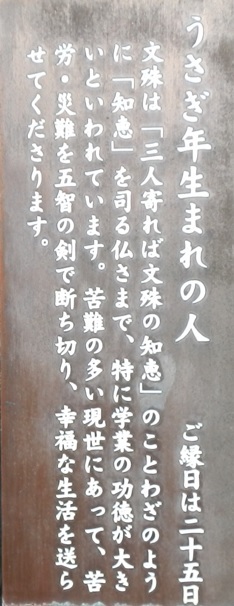 うさぎ年生まれの人　ご縁日は二十五日
文殊は「三人寄れば文殊の知恵」のことわざのよう
に「知恵」を司る仏さまで、特に学業の功徳が大き
いといわれています。苦難の多い現世にあって、苦
労・災難を五智の剣で断ち切り、幸福な生活を送ら
せてくださります。